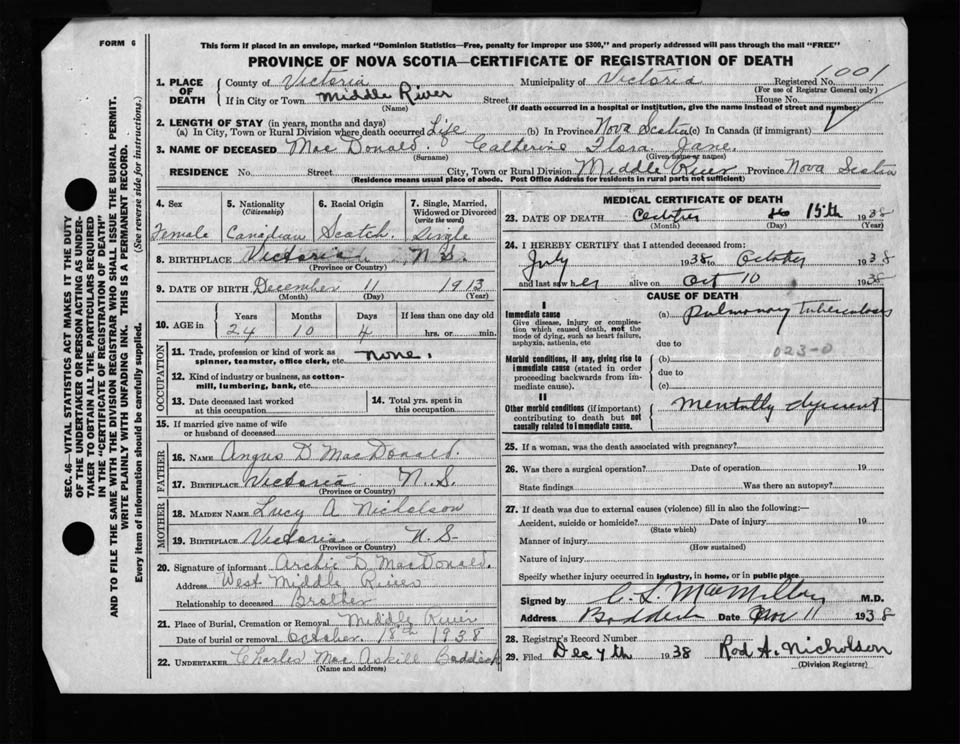 FORM 6
This form if placed in an envelope, marked "Dominion Statistics—Free, penalty for improper use $300," and properly addressed will pass through the mail "FREE"
PROVINCE OF NOVA SCOTIA—CERTIFICATE OF REGISTRATION OF DEATH
SEC. 46—VITAL STATISTICS ACT MAKES IT THE DUTY
OF THE UNDERTAKER OR PERSON ACTING AS UNDER-
TAKER TO OBTAIN ALL THE PARTICULARS REQUIRED
IN THE "CERTIFICATE OF REGISTRATION OF DEATH"
AND TO FILE THE SAME WITH THE DIVISION REGISTRAR WHO SHALL ISSUE THE BURIAL PERMIT.
WRITE PLAINLY WITH UNFADING INK. THIS IS A PERMANENT RECORD.
Every item of information should be carefully supplied. (See reverse side for instructions.)
1. PLACE OF DEATH
County of Victoria Municipality of Victoria Registered No. 1001
(For use of Registrar General only)
If in City or Town Middle River Street House No.
(Name) (If death occurred in a hospital or institution, give the name instead of street and number)
2. LENGTH OF STAY (in years, months and days)
(a) In City, Town or Rural Division where death occurred Life (b) In Province Nova Scotia (c) In Canada (if immigrant)
3. NAME OF DECEASED MacDonald. Catherine Flora Jane.
(Surname) (Given name or names)
RESIDENCE No. Street City, Town or Rural Division Middle River Province Nova Scotia
(Residence means usual place of abode. Post Office Address for residents in rural parts not sufficient)
4. Sex
Female
5. Nationality
(Citizenship)
Canadian
6. Racial Origin
Scotch.
7. Single, Married,
Widowed or Divorced
(write the word)
Single
8. BIRTHPLACE Victoria N.S.
(Province or Country)
9. DATE OF BIRTH December 11 1913
(Month) (Day) (Year)
10. AGE in
Years Months Days If less than one day old
24 10 4 hrs. or min.
OCCUPATION
11. Trade, profession or kind of work as
spinner, teamster, office clerk, etc. none.
12. Kind of industry or business, as cotton-
mill, lumbering, bank, etc.
13. Date deceased last worked
at this occupation
14. Total yrs. spent in
this occupation
15. If married give name of wife
or husband of deceased
FATHER
16. NAME Angus D MacDonald.
17. BIRTHPLACE Victoria N.S.
(Province or Country)
MOTHER
18. MAIDEN NAME Lucy A Nicholson
19. BIRTHPLACE Victoria N.S-
(Province or Country)
20. Signature of informant Archie D. MacDonald.
Address West Middle River
Relationship to deceased Brother
21. Place of Burial, Cremation or Removal Middle River
Date of burial or removal October 18th 1938
22. UNDERTAKER Charles MacAskill Baddeck
(Name and address)
MEDICAL CERTIFICATE OF DEATH
23. DATE OF DEATH October 15th 1938
(Month) (Day) (Year)
24. I HEREBY CERTIFY that I attended deceased from:
July 1938 to October 1938
and last saw her alive on Oct 10 1938
CAUSE OF DEATH
I
Immediate cause
Give disease, injury or complica-
tion which caused death, not the
mode of dying, such as heart failure,
asphyxia, asthenia, etc
(a) Pulmonary Tuberculosis
due to
023-0
Morbid conditions, if any, giving rise to
immediate cause (stated in order
proceeding backwards from im-
mediate cause).
(b)
due to
(c)
II
Other morbid conditions (if important)
contributing to death but not
causally related to immediate cause.
mentally
25. If a woman, was the death associated with pregnancy?
26. Was there a surgical operation? Date of operation 19
State findings Was there an autopsy?
27. If death was due to external causes (violence) fill in also the following:—
Accident, suicide or homicide? Date of injury 19
(State which)
Manner of injury
(How sustained)
Nature of injury
Specify whether injury occurred in industry, in home, or in public place
Signed by C. L. MacMillan M.D.
Address Baddeck Date Nov 1 1938
28. Registrar's Record Number
29. Filed Dec 7th 1938 Rod A. Nicholson
(Division Registrar)